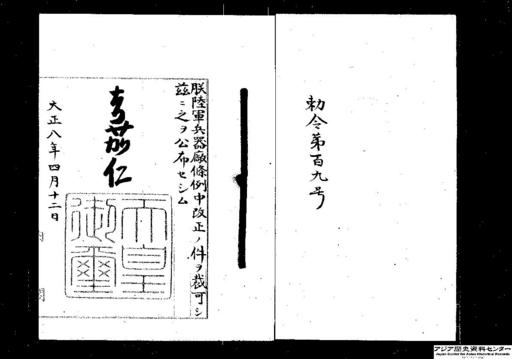 勅令第百九号
朕陸軍兵器廠條例中改正ノ件ヲ裁可シ
茲ニ之ヲ公布セシム
嘉仁
天皇
御璽
大正八年四月十二日
アジア歴史資料センター
Japan Center for Asian Historical Records